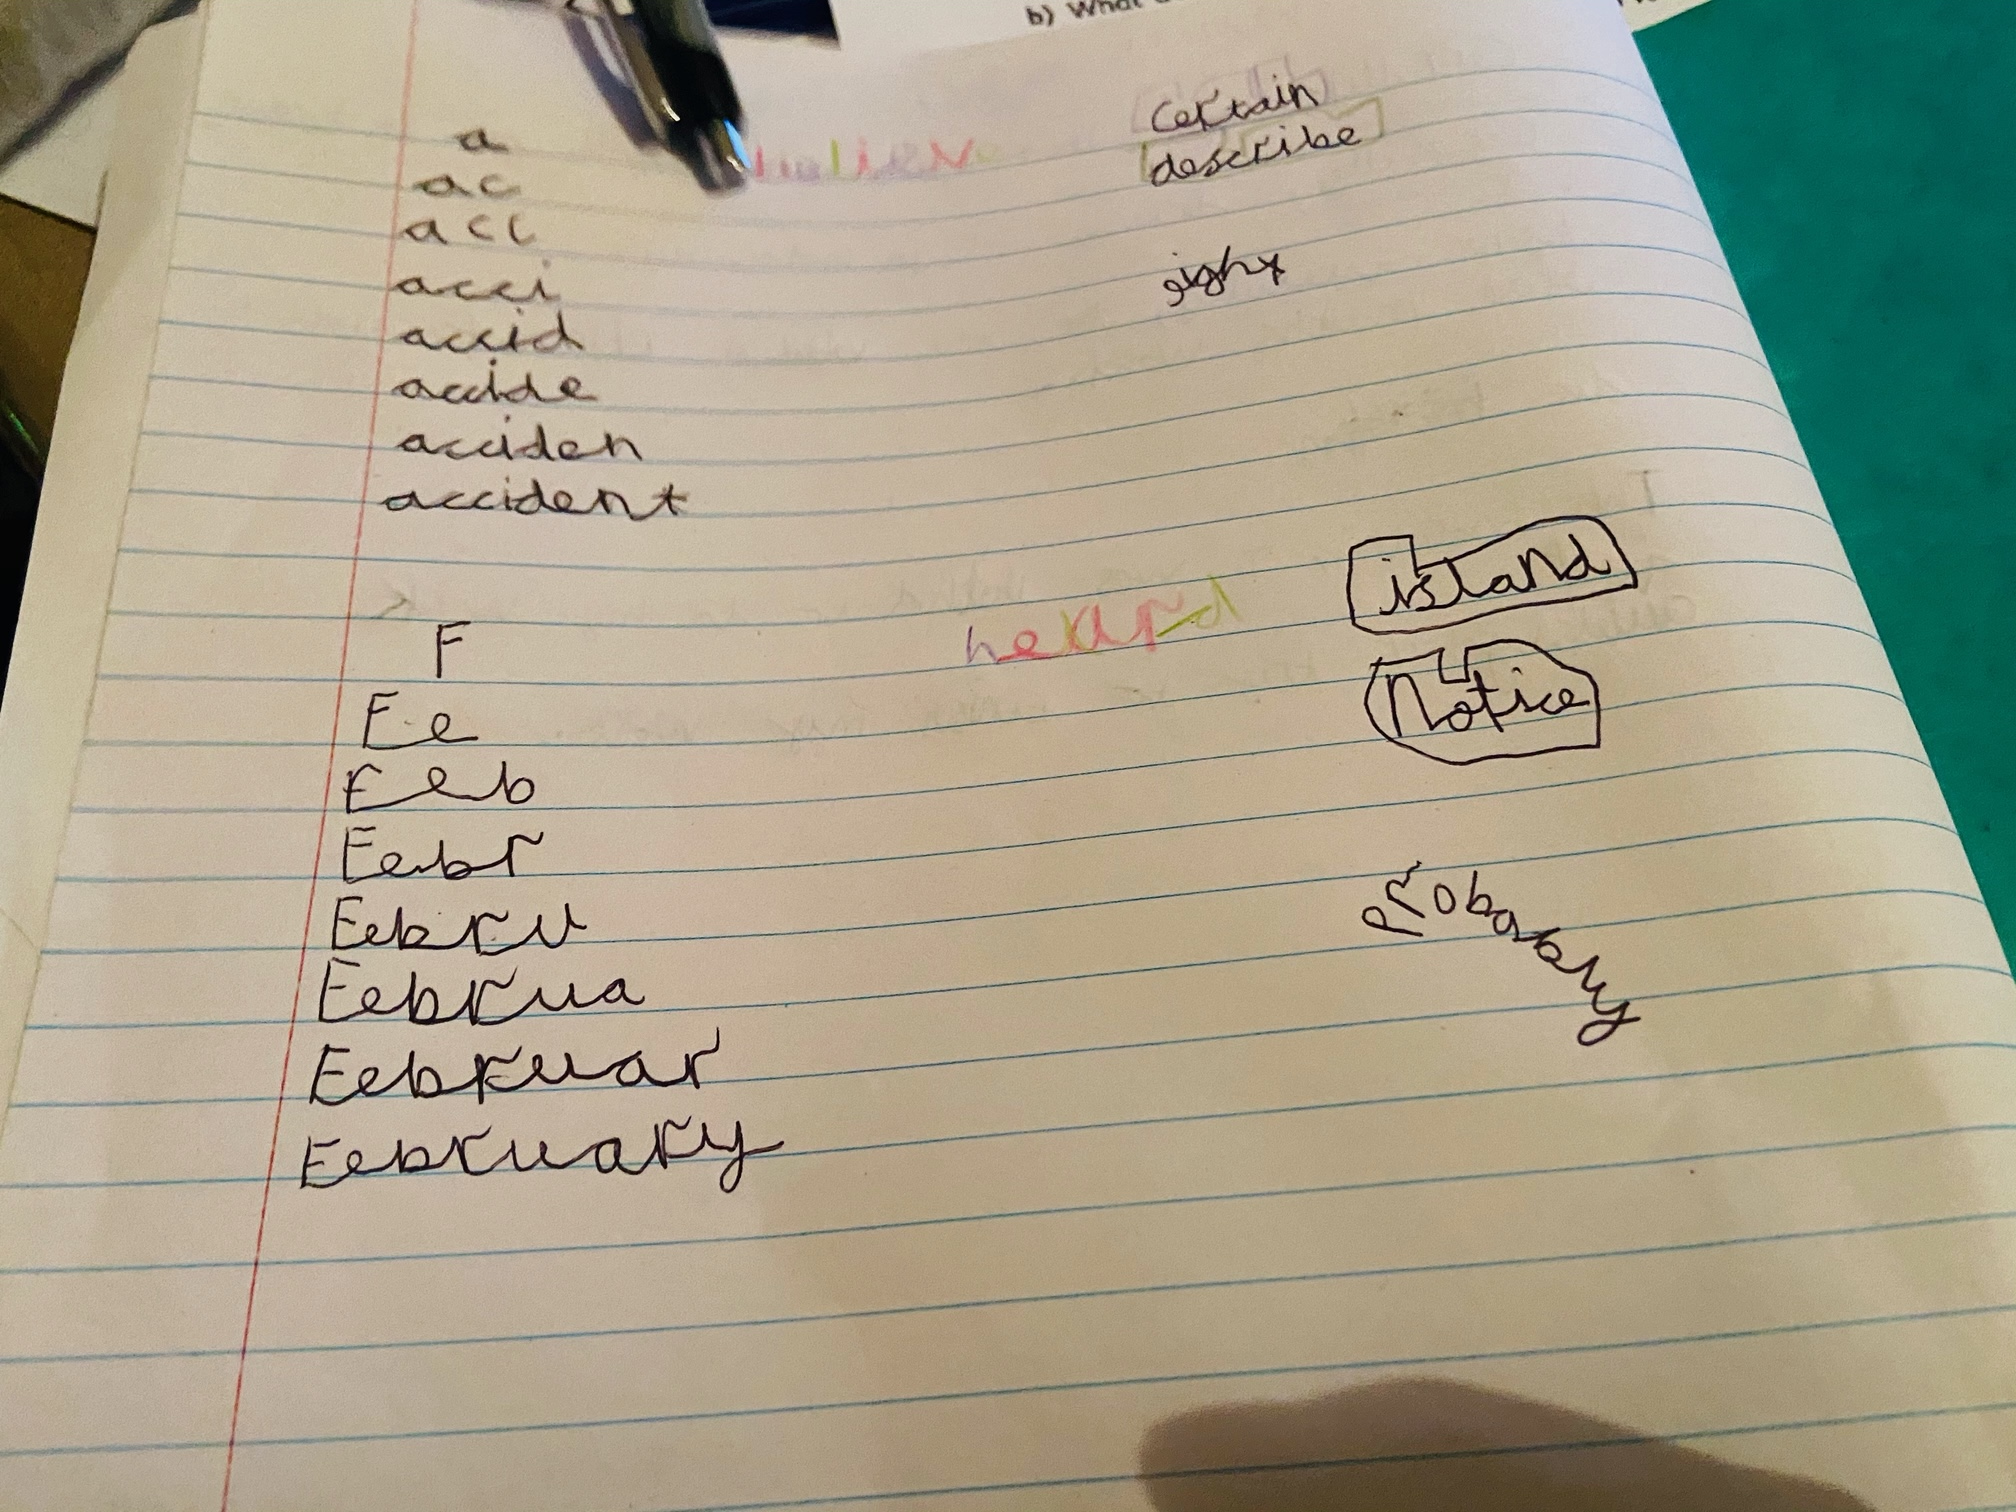 b) What
certain
describe
a
ac
acc
acci
accid
accide
acciden
accident
eight
island
Notice
F
Fe
Feb
Febr
Febru
Februa
Februar
February
heard
probably